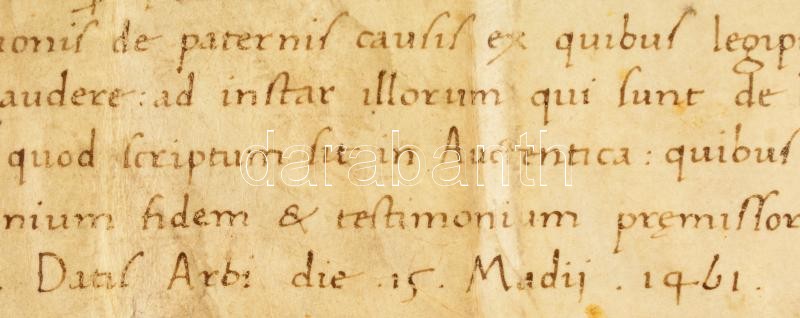 ionis de paternis causis ex quibus legip
audere: ad instar illorum qui sunt de
quod scriptum sit in Auctentica: quibus
nium fidem & testimonium pręmissor
. Datis Arbi die .15. Madij .1461.
darabanth